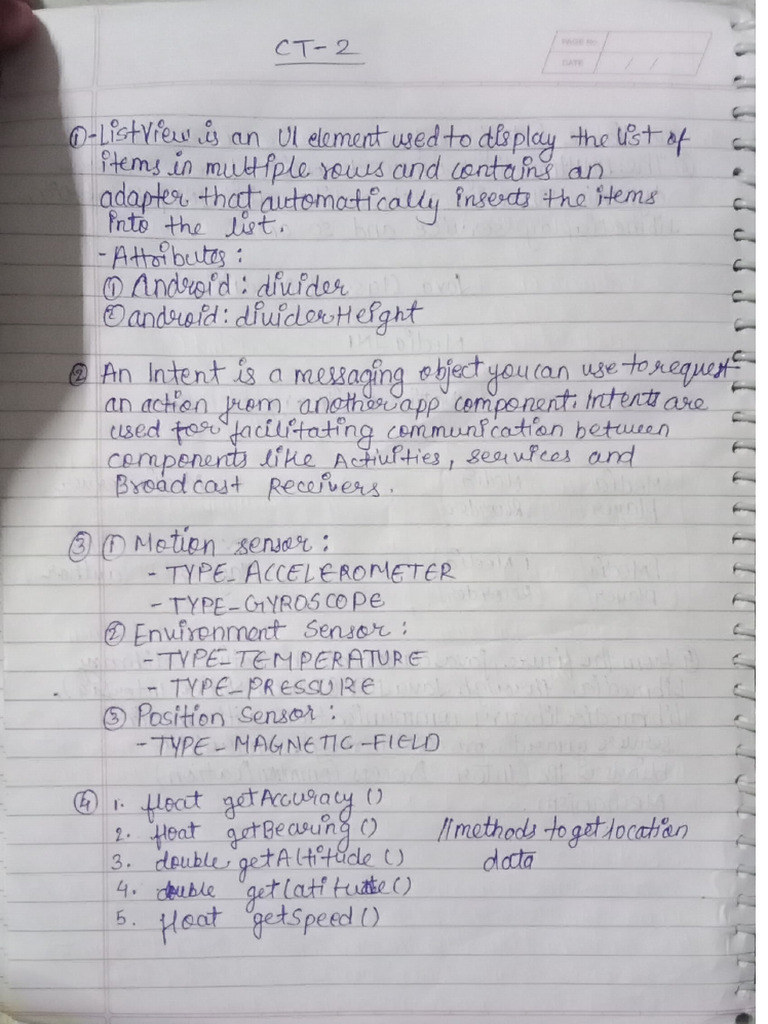 CT-2
PAGE No.
DATE / /
① - ListView is an UI element used to display the list of
items in multiple rows and contains an
adapter that automatically inserts the items
into the list.
- Attributes :
① Android : divider
② android : dividerHeight
② An Intent is a messaging object you can use to request
an action from another app component. Intents are
used for facilitating communication between
components like Activities, services and
Broadcast Receivers.
③ ① Motion sensor :
- TYPE_ACCELEROMETER
- TYPE_GYROSCOPE
② Environment Sensor :
- TYPE_TEMPERATURE
- TYPE_PRESSURE
③ Position Sensor :
- TYPE_MAGNETIC_FIELD
④ 1. float getAccuracy ()
2. float getBearing () // methods to get location
3. double getAltitude () data
4. double getLatitute ()
5. float getSpeed ()